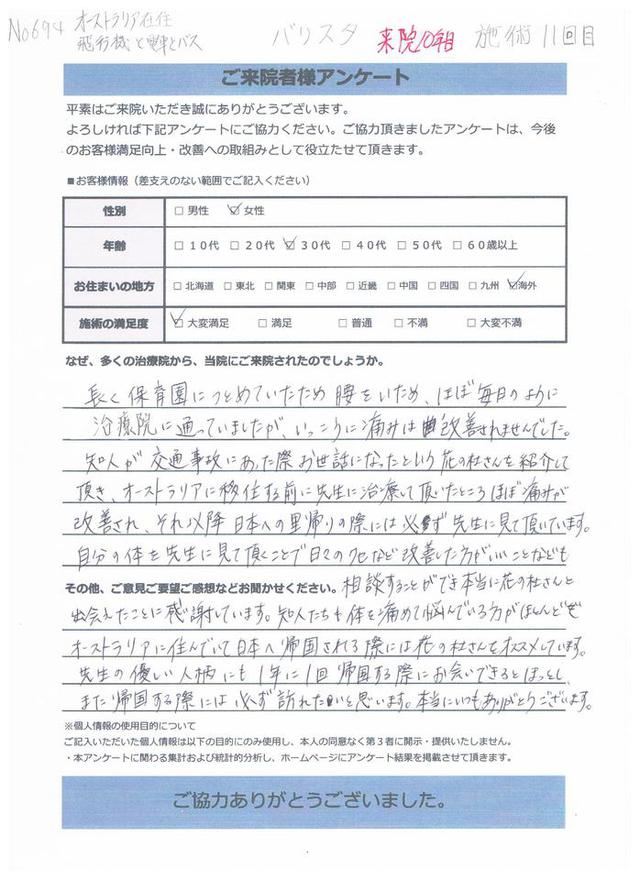 No694 オーストラリア在住 バリスタ 来院10年目 施術11回目
飛行機と電車とバス
ご来院者様アンケート
平素はご来院いただき誠にありがとうございます。
よろしければ下記アンケートにご協力ください。ご協力頂きましたアンケートは、今後
のお客様満足向上・改善への取組みとして役立たせて頂きます。
■お客様情報（差支えのない範囲でご記入ください）
性別 □男性 ☑女性
年齢 □10代 □20代 ☑30代 □40代 □50代 □60歳以上
お住まいの地方 □北海道 □東北 □関東 □中部 □近畿 □中国 □四国 □九州 ☑海外
施術の満足度 ☑大変満足 □満足 □普通 □不満 □大変不満
なぜ、多くの治療院から、当院にご来院されたのでしょうか。
長く保育園につとめていたため腰をいため、ほぼ毎日のように
治療院に通っていましたが、いっこうに痛みは改善されませんでした。
知人が交通事故にあった際お世話になったという花の杜さんを紹介して
頂き、オーストラリアに移住する前に先生に治療して頂いたところほぼ痛みが
改善され、それ以降日本への里帰りの際には必ず先生に見て頂いています。
自分の体を先生に見て頂くことで日々のクセなど改善した方がいいことなども
その他、ご意見ご要望ご感想などお聞かせください。相談することができ本当に花の杜さんと
出会えたことに感謝しています。知人たちも体を痛めて悩んでいる方がほとんどで
オーストラリアに住んでいて日本へ帰国される際には花の杜さんをオススメしています。
先生の優しい人柄にも1年に1回帰国する際にお会いできるとほっとし、
また帰国する際には必ず訪れたいと思います。本当にいつもありがとうございます。
※個人情報の使用目的について
ご記入いただいた個人情報は以下の目的にのみ使用し、本人の同意なく第3者に開示・提供いたしません。
・本アンケートに関わる集計および統計的分析し、ホームページにアンケート結果を掲載させて頂きます。
ご協力ありがとうございました。